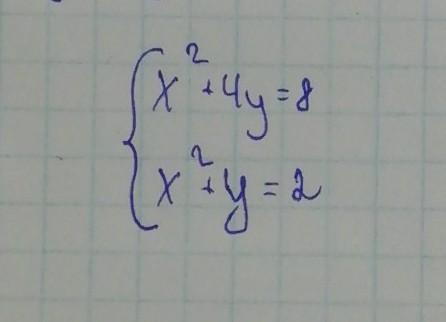 x²+4y=8
x²+y=2